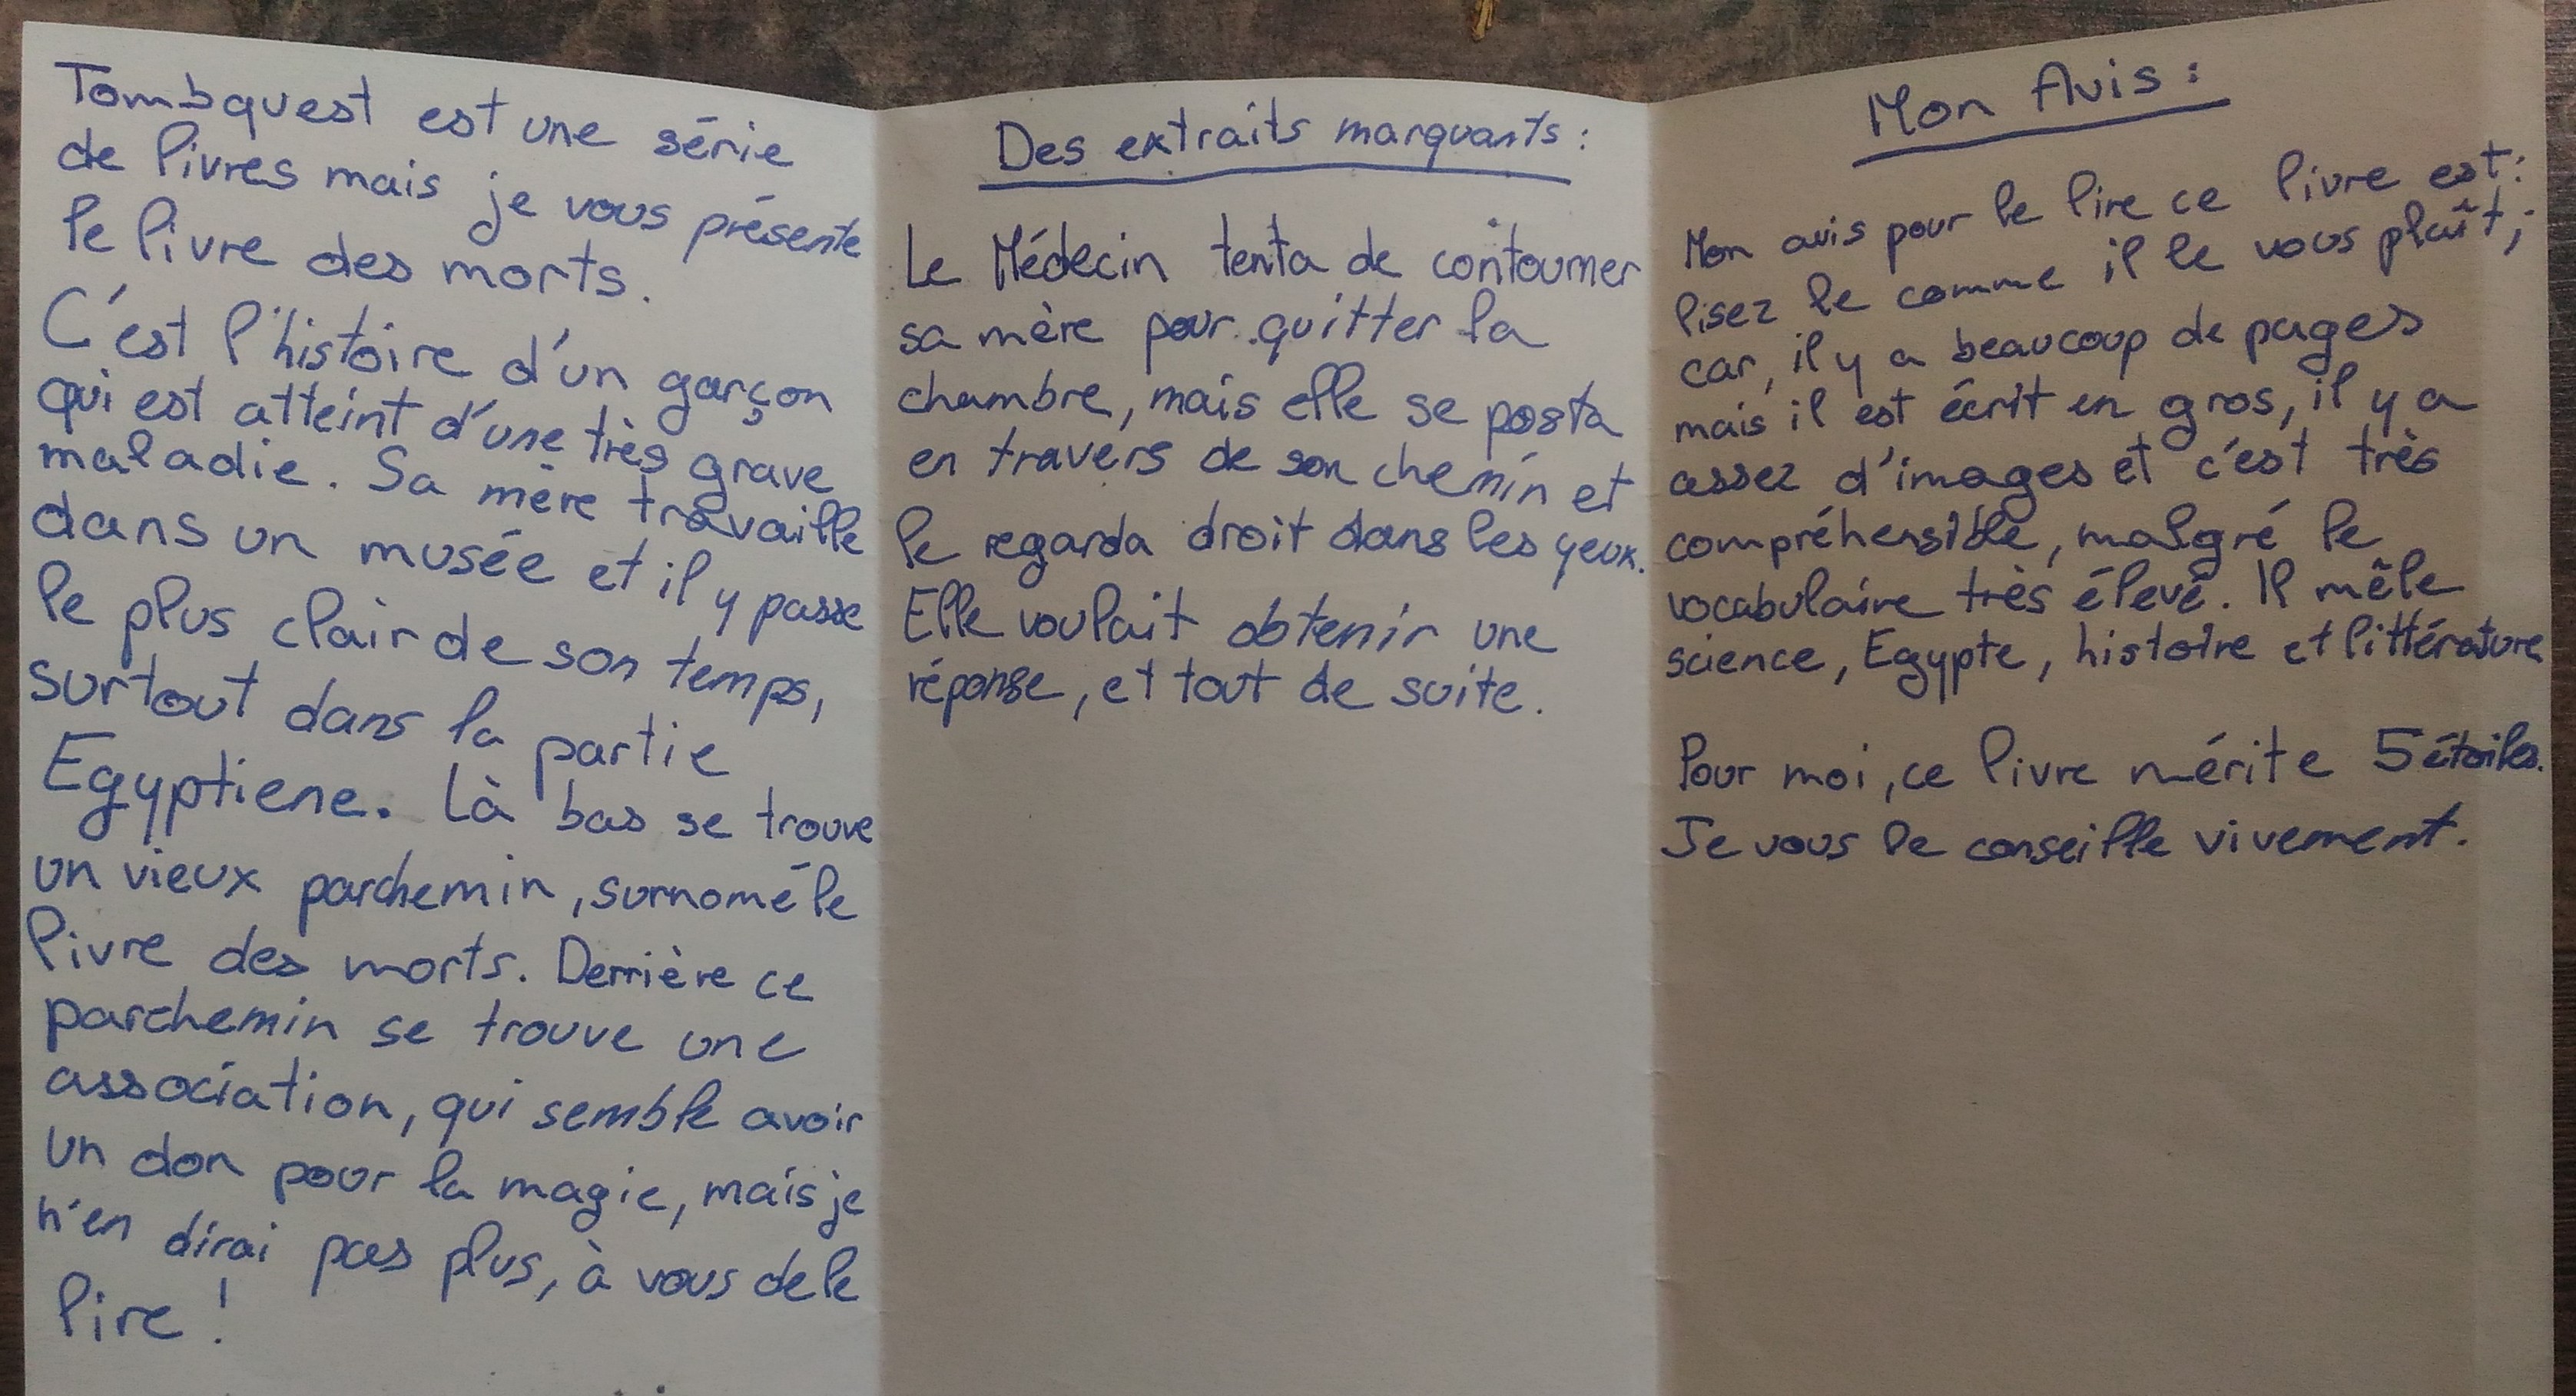 Tombquest est une série
de livres mais je vous présente
le livre des morts.
C'est l'histoire d'un garçon
qui est atteint d'une très grave
maladie. Sa mère travaille
dans un musée et il y passe
le plus clair de son temps,
surtout dans la partie
Egyptiene. Là bas se trouve
un vieux parchemin, surnomé le
livre des morts. Derrière ce
parchemin se trouve une
association, qui semble avoir
un don pour la magie, mais je
n'en dirai pas plus, à vous de le
lire !
Des extraits marquants :
Le Médecin tenta de contourner
sa mère pour quitter la
chambre, mais elle se posta
en travers de son chemin et
le regarda droit dans les yeux.
Elle voulait obtenir une
réponse, et tout de suite.
Mon Avis :
Mon avis pour le lire ce livre est :
lisez le comme il le vous plaît ;
car, il y a beaucoup de pages
mais il est écrit en gros, il y a
assez d'images et c'est très
compréhensible, malgré le
vocabulaire très élevé. Il mêle
science, Egypte, histoire et littérature
Pour moi, ce livre mérite 5 étoiles.
Je vous le conseille vivement.